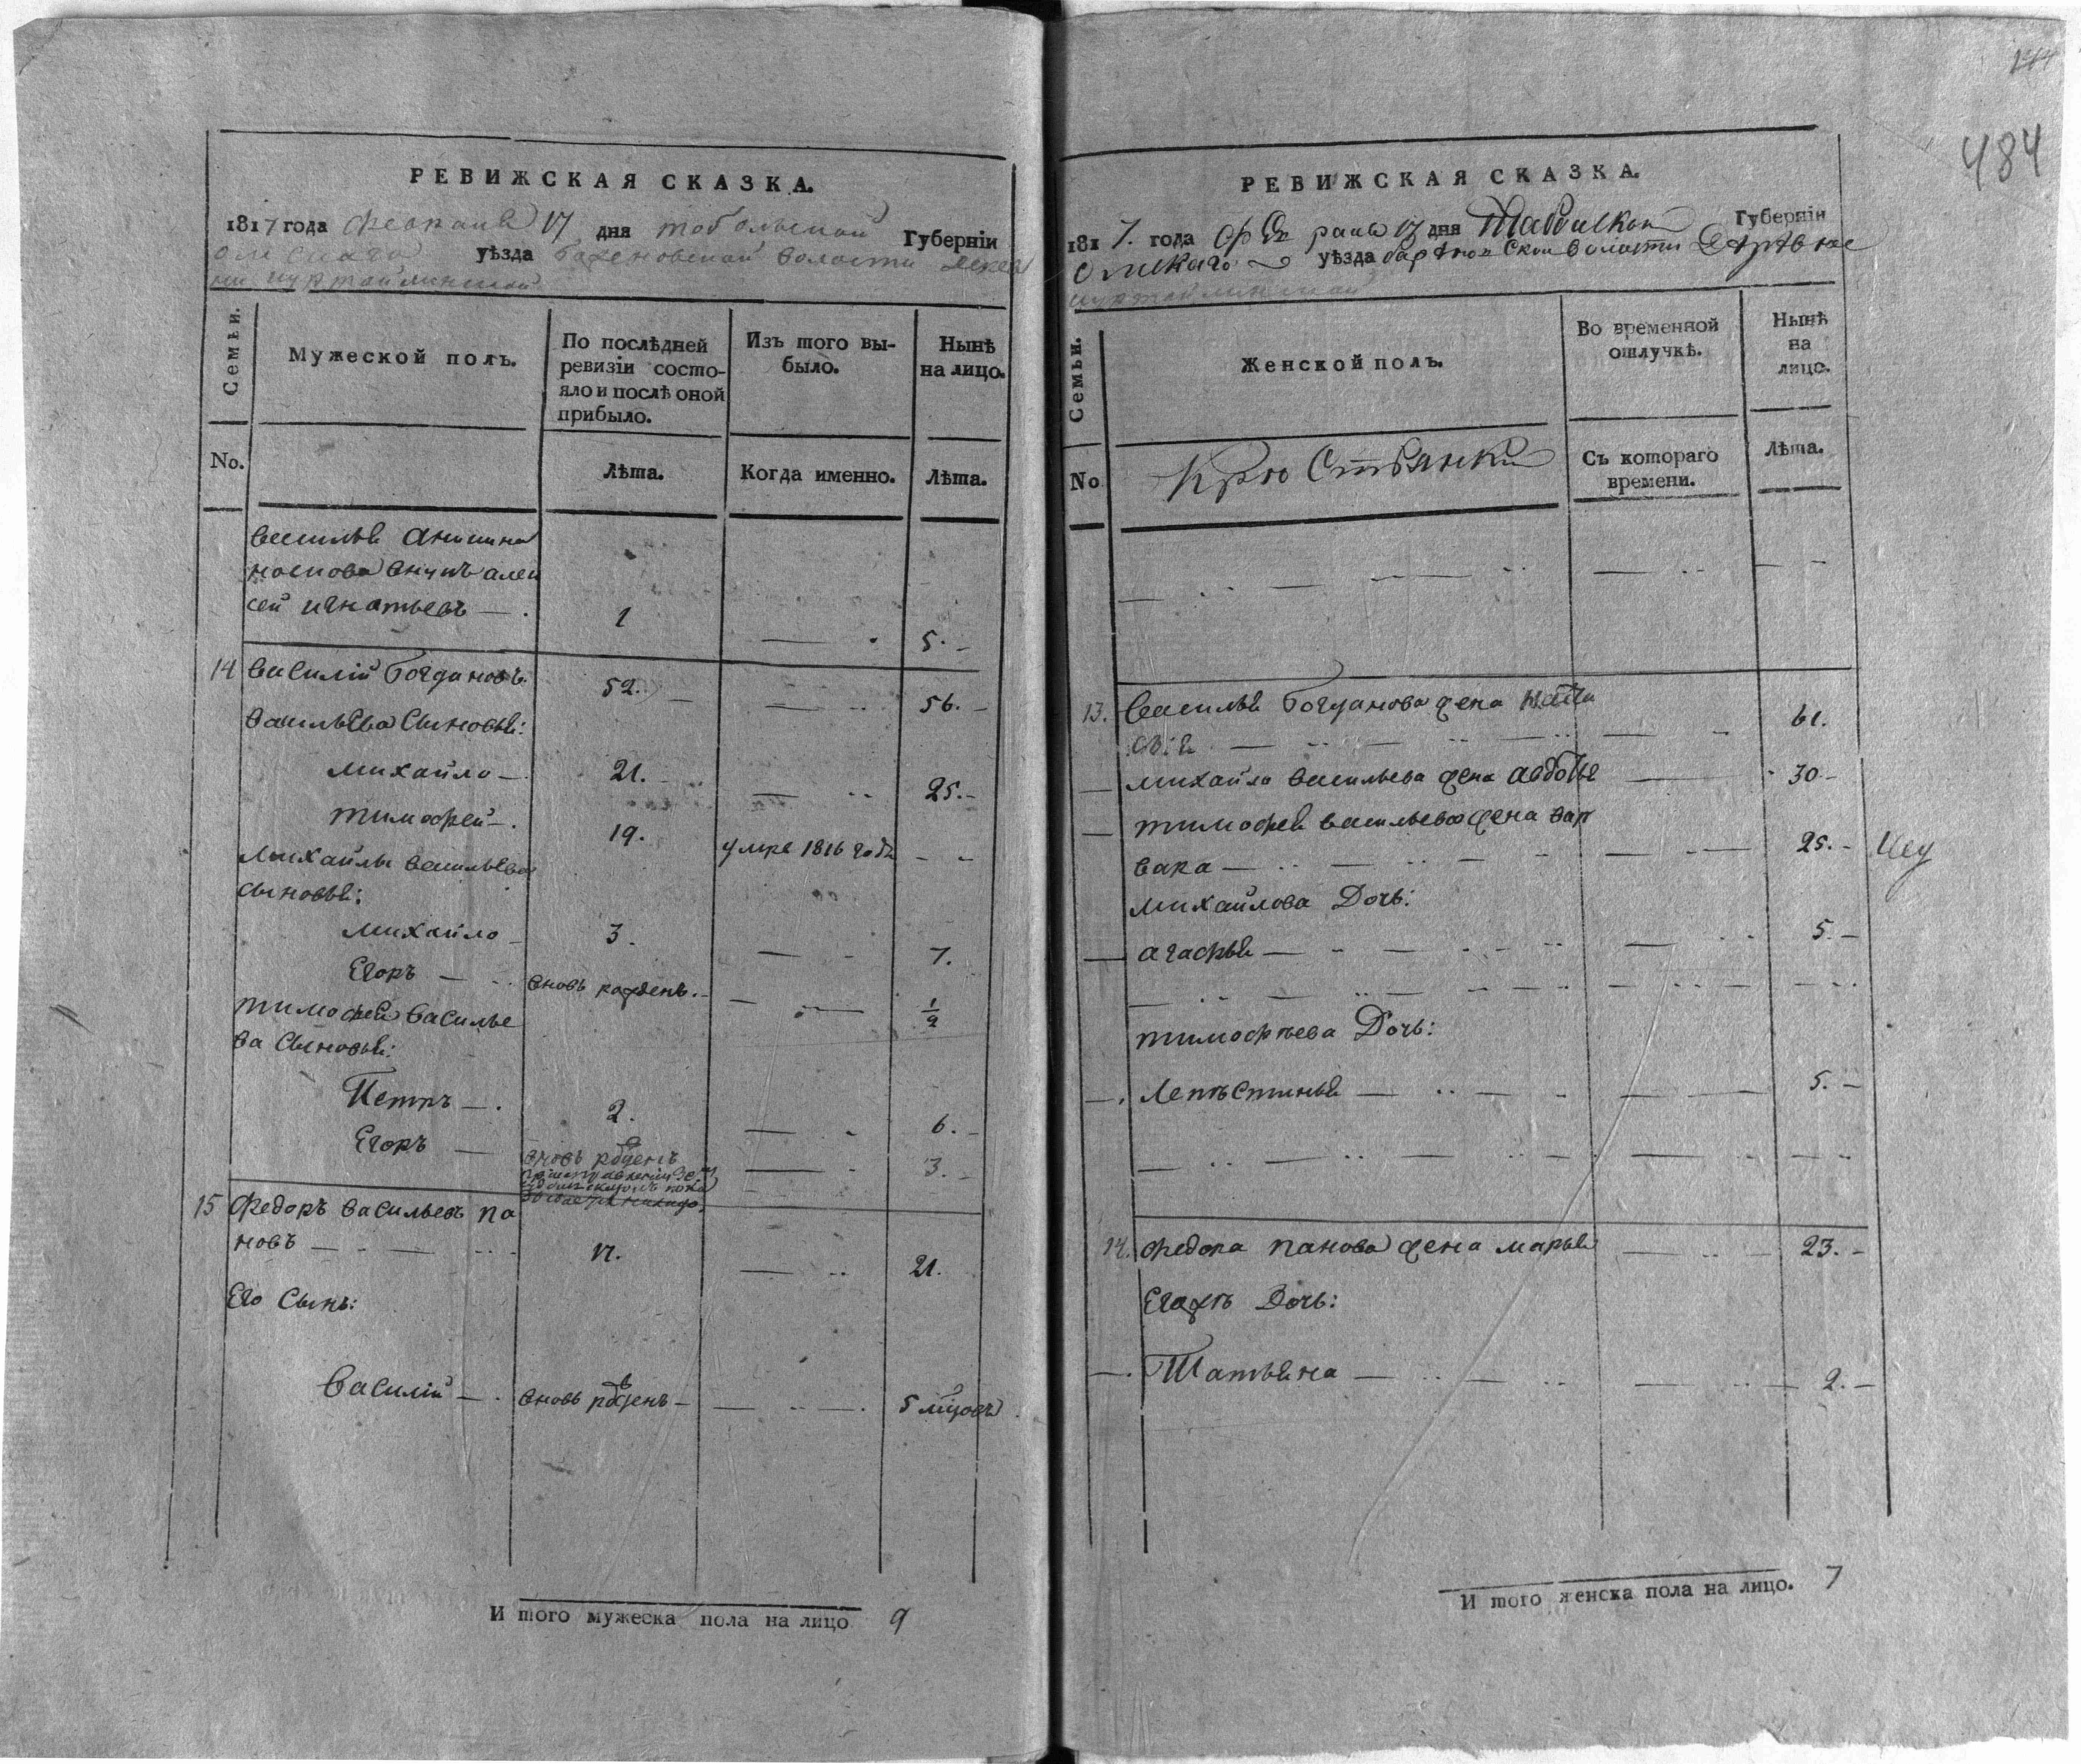 484
РЕВИЖСКАЯ СКАЗКА.
1817 года февраля 17 дня тобольской Губерніи
омскаго уѣзда баженовской волости дерев
ни
Семьи.
Мужеской полъ.
По послѣдней
ревизіи состо-
яло и послѣ оной
прибыло.
Изъ того вы-
было.
Нынѣ
на лицо.
No.
Лѣта.
Когда именно.
Лѣта.
василья
внукъ алек
сей игнатьевъ — 1 — 5.
14 василій богдановъ. 52. — 56.
васильева сыновья:
михайло — 21. — 25.
тимофей — 19. умре 1816 года — -
михайлы васильева
сыновья:
михайло — 3. — 7.
Егоръ — вновь рожденъ. — 1/2
тимофея василье
ва сыновья:
Петръ — 2. — 6.
Егоръ — вновь рожденъ — 3.
15 федоръ васильевъ па
новъ — 17. — 21.
Его сынъ:
василій — вновь рожденъ — 5 мцовъ
И того мужеска пола на лицо 9
РЕВИЖСКАЯ СКАЗКА.
1817. года февраля 17 дня Тобольской Губерніи
омскаго уѣзда баженовской волости деревне
Семьи.
Женской полъ.
Во временной
отлучкѣ.
Нынѣ
на
лицо.
No
Крестьянки
Съ котораго
времени.
Лѣта.
13. василья богданова жена
— 61.
— михайла васильева жена авдотья — 30
— тимофея васильева жена вар
вара — 25.
михайлова Дочь:
— агафья — 5.
тимофѣева Дочь:
— 5.
14. федора панова жена марья — 23.
Егожъ Дочь:
— Татьяна — 2.
И того женска пола на лицо. 7